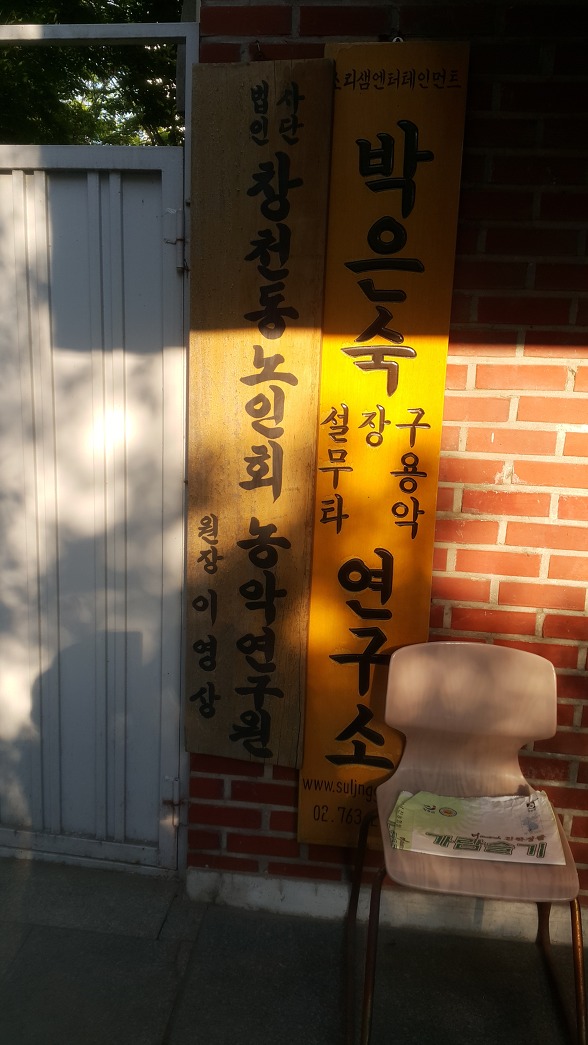 사단
법인
창천동노인회 농악연구원
원장 이영상
소리샘엔터테인먼트
박은숙
설장구
무용
타악
연구소
www.suljng
02.763